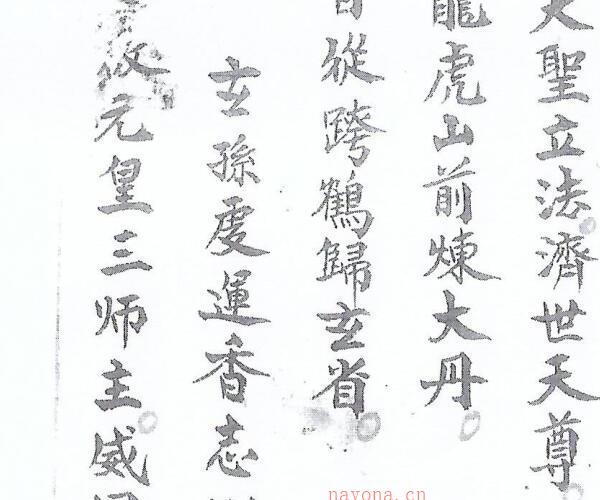 大聖立法濟世天尊
龍虎山前煉大丹
從跨鶴歸玄省
玄孫虔運香志
元皇三师主威
nayona.cn